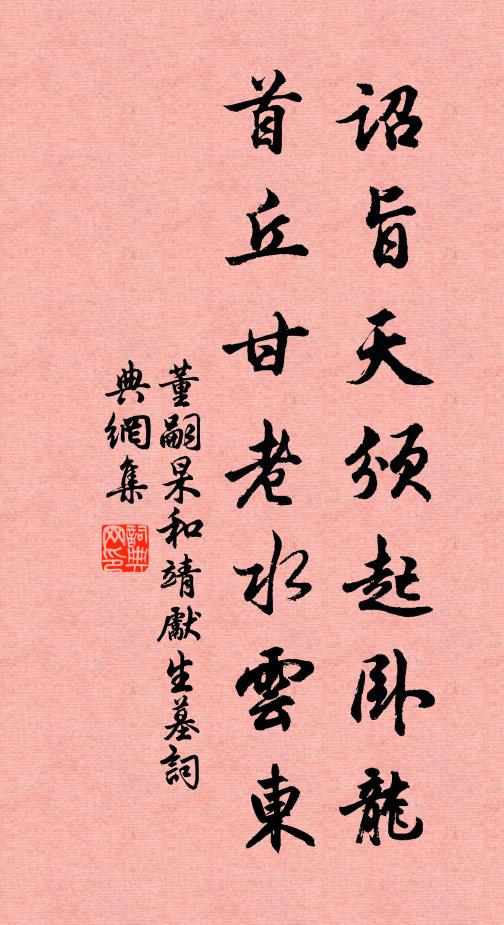 詔旨天須起卧龍
首丘甘老水雲東
董嗣杲和靖獻生墓詞
典網集
詞典網印